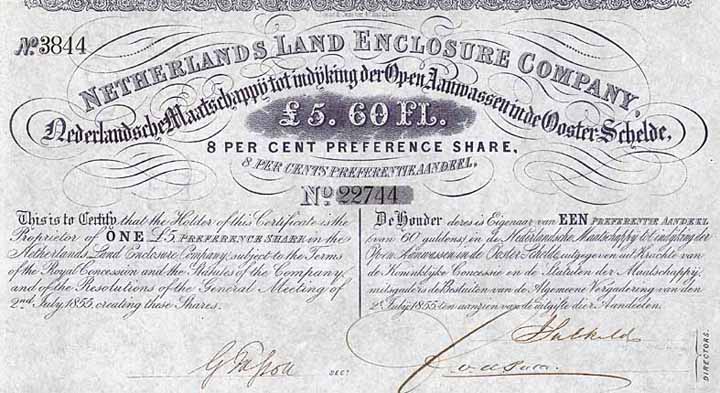 No. 3844
NETHERLANDS LAND ENCLOSURE COMPANY,
Nederlandsche Maatschappÿ tot indÿking der Open Aanwassen in de Ooster-Schelde.
£5. 60 Fl.
8 PER CENT PREFERENCE SHARE,
8 PER CENTS PREFERENTIE AANDEEL.
No 22744
This is to Certify that the Holder of this Certificate is the
Proprietor of ONE £5 PREFERENCE SHARE in the
Netherlands Land Enclosure Company, subject to the Terms
of the Royal Concession and the Statutes of the Company,
and of the Resolutions of the General Meeting of
2nd July, 1855, creating these Shares.
De Houder dezes is Eigenaar van EEN PREFERENTIE AANDEEL
(van 60 guldens) in de Nederlandsche Maatschappy tot indyking der
Open Aanwassen in de Ooster Schelde, uitgegeven uit Kracht van
de Koninklyke Concessie en de Statuten der Maatschappy,
mitsgaders de Besluiten van de Algemeene Vergadering van den
2e July, 1855, ten aanzien van de uitgifte dier Aandeelen.
SECY
DIRECTORS.